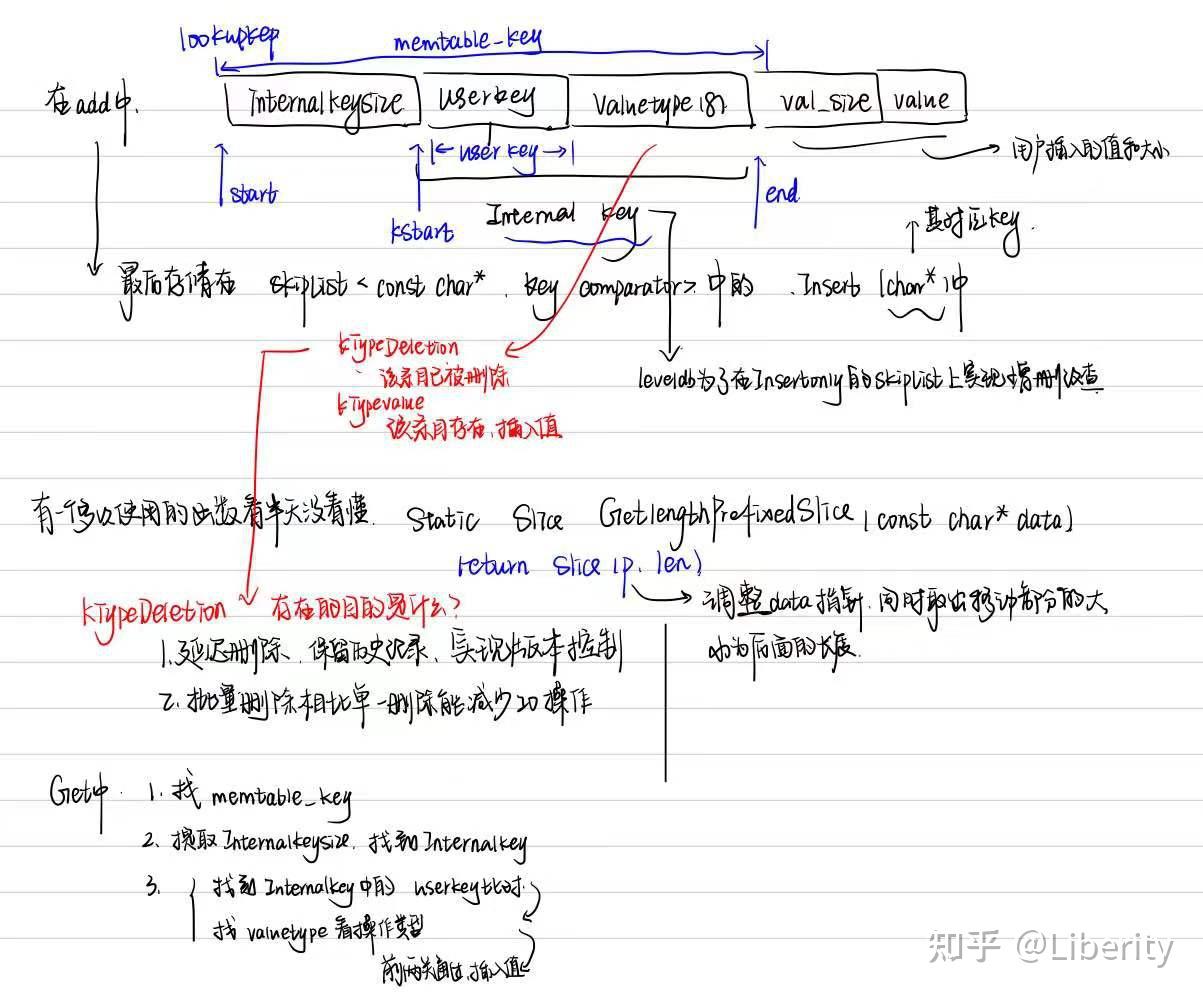 lookupkep
memtable_key
在add中.
Internalkeysize userkey Valuetype (8) val_size value
userkey
用户插入的值和大小
start
kstart
Internal key
end
其对应key.
最后存储在 skiplist < const char* , key comparator> 中的 . Insert (char*)中
kTypeDeletion
该条目已被删除
kTypevalue
该条目存在、插入值
leveldb为了在Insertonly的skiplist上实现增删改查
有一个多次使用的函数看半天没看懂. Static Slice GetlengthPrefixedSlice (const char* data)
return slice (p, len)
调整data指针, 同时取出移动部分的大
小为后面的长度.
kTypeDeletion 存在的目的是什么?
1. 延迟删除、保留历史记录、实现版本控制
2. 批量删除相比单一删除能减少IO操作
Get中. 1. 找 memtable_key
2. 提取Internalkeysize, 找到Internalkey
3. 找到Internalkey中的 userkey比对.
找valuetype看操作类型
前两关通过, 插入值
知乎 @Liberity